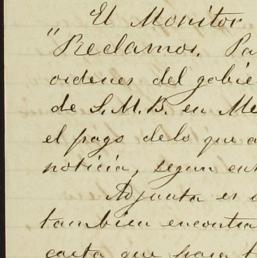 El Monitor
"Reclamos. Pa
ordenes del gobie
de S. M. B. en Me
el pago delo que a
noticia, segun en
Adjunta es
tambien encontra
carta que para